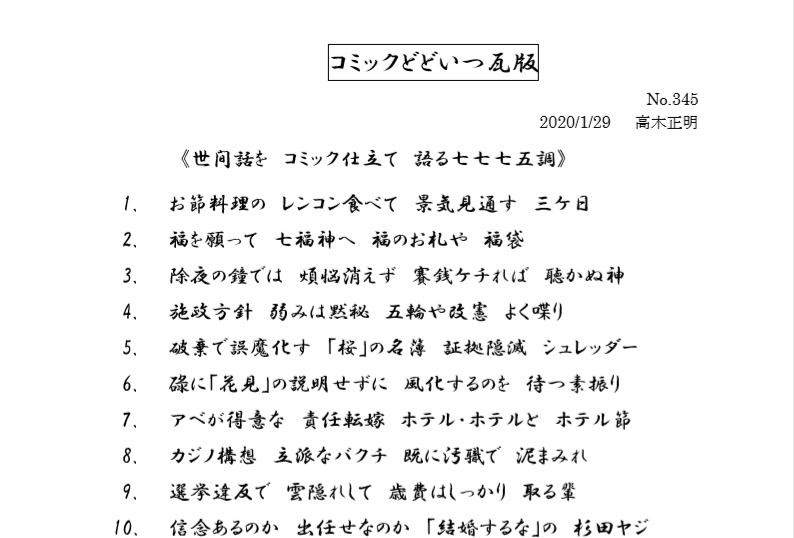 コミックどどいつ瓦版
No.345
2020/1/29 高木正明
《世間話を コミック仕立て 語る七七七五調》
1、 お節料理の レンコン食べて 景気見通す 三ケ日
2、 福を願って 七福神へ 福のお札や 福袋
3、 除夜の鐘では 煩悩消えず 賽銭ケチれば 聴かぬ神
4、 施政方針 弱みは黙秘 五輪や改憲 よく喋り
5、 破棄で誤魔化す 「桜」の名簿 証拠隠滅 シュレッダー
6、 碌に「花見」の説明せずに 風化するのを 待つ素振り
7、 アベが得意な 責任転嫁 ホテル・ホテルと ホテル節
8、 カジノ構想 立派なバクチ 既に汚職で 泥まみれ
9、 選挙違反で 雲隠れして 歳費はしっかり 取る輩
10、 信念あるのか 出任せなのか 「結婚するな」の 杉田ヤジ